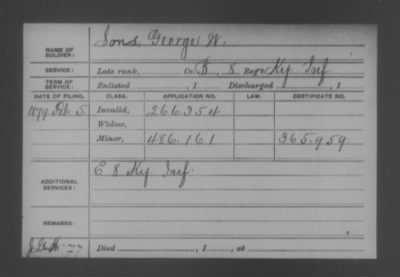 NAME OF SOLDIER: Sons, George W.
SERVICE: Late rank, Co. B, 8 Reg't Ky Inf
TERM OF SERVICE: Enlisted , 1 Discharged , 1
DATE OF FILING. CLASS. APPLICATION NO. LAW. CERTIFICATE NO.
1879 Feb. 5. Invalid, 266354
Widow,
Minor, 486.161 365.959
ADDITIONAL SERVICES: E 8 Ky Inf.
REMARKS:
Died , 1 , at